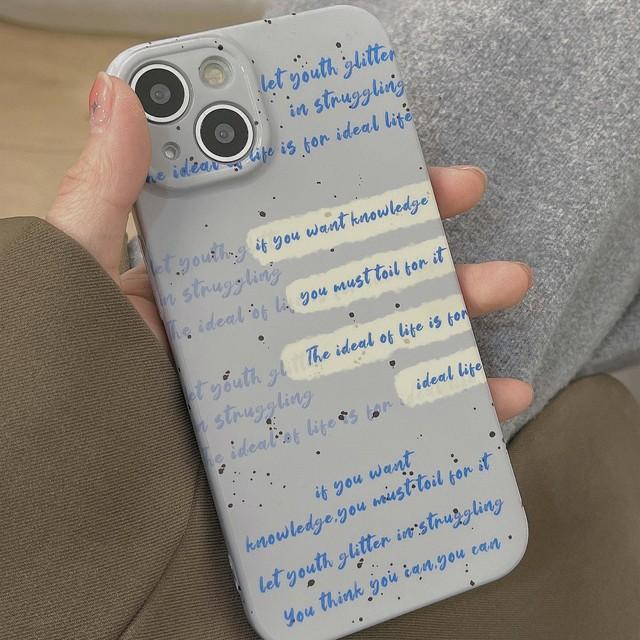 let youth glitter
in struggling
he ideal of life is for ideal life
if you want knowledge
let youth g
in struggling
you must toil for it
The ideal of li
The ideal of life is for
et youth gl
ideal life
n struggling
he ideal of life is for
if you want
knowledge,you must toil for it
let youth glitter in struggling
You think you can,you can